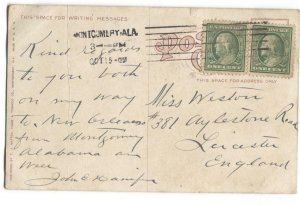 THIS SPACE FOR WRITING MESSAGES
MONTGOMERY, ALA.
3-PM
OCT 15-09
Post
THIS SPACE FOR ADDRESS ONLY
Kind regards
to you both
on my way
to New Orleans
from Montgomery
Alabama am
Well
John E
Miss Weston
#381 Aylestone Road
Leicester
England